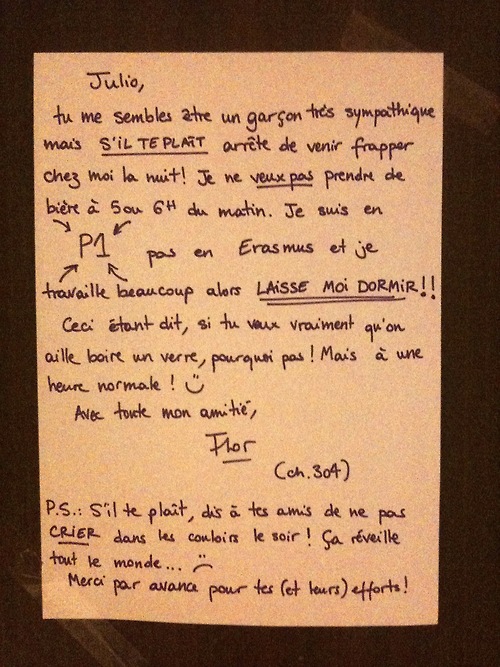 Julio,
tu me sembles être un garçon très sympathique
mais S'IL TE PLAÎT arrête de venir frapper
chez moi la nuit! Je ne veux pas prendre de
bière à 5 ou 6H du matin. Je suis en
P1 pas en Erasmus et je
travaille beaucoup alors LAISSE MOI DORMIR!!
Ceci étant dit, si tu veux vraiment qu'on
aille boire un verre, pourquoi pas! Mais à une
heure normale! :)
Avec toute mon amitié,
Flor
(ch.304)
P.S.: S'il te plaît, dis à tes amis de ne pas
CRIER dans les couloirs le soir! Ça réveille
tout le monde... :(
Merci par avance pour tes (et leurs) efforts!